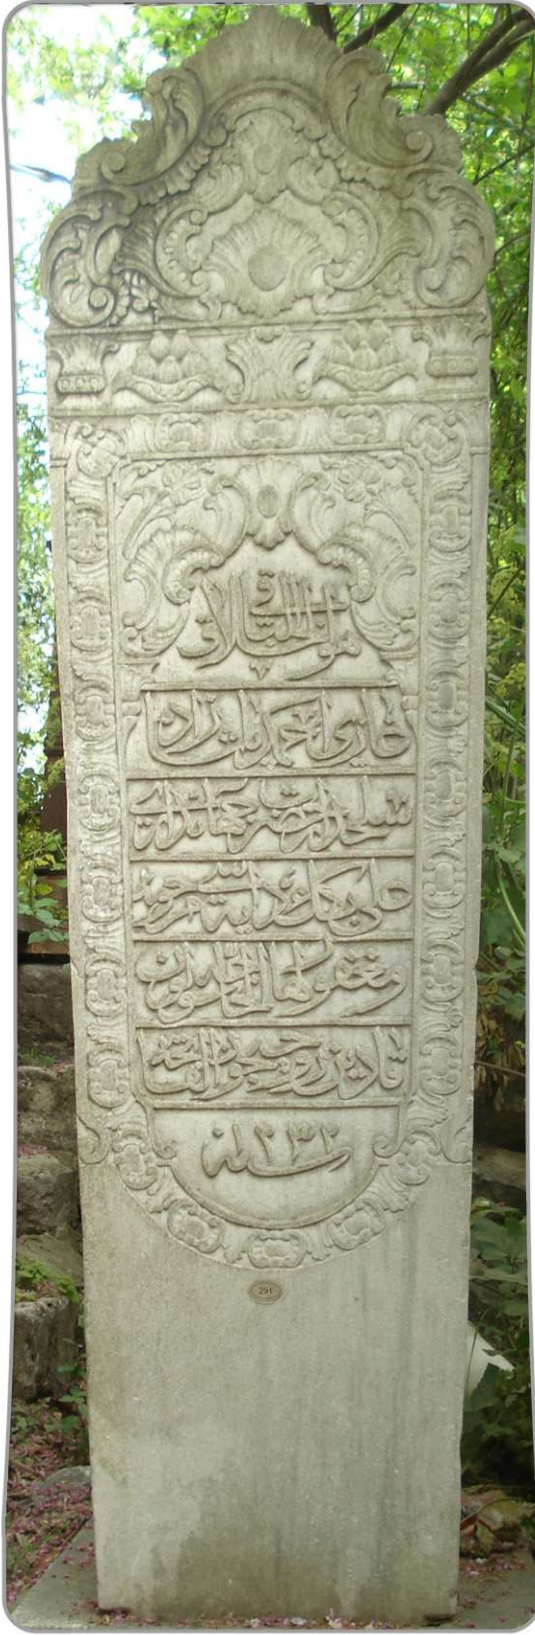 هو الخلاق الباقی
غازی احمد پاشا زاده
سلحدار حضرت جهانداری
علی بك دایه سی مرحومه
ومغفور لها الحاجه
قادین روحیچون الفاتحه
سنه ١٢٣٢
291